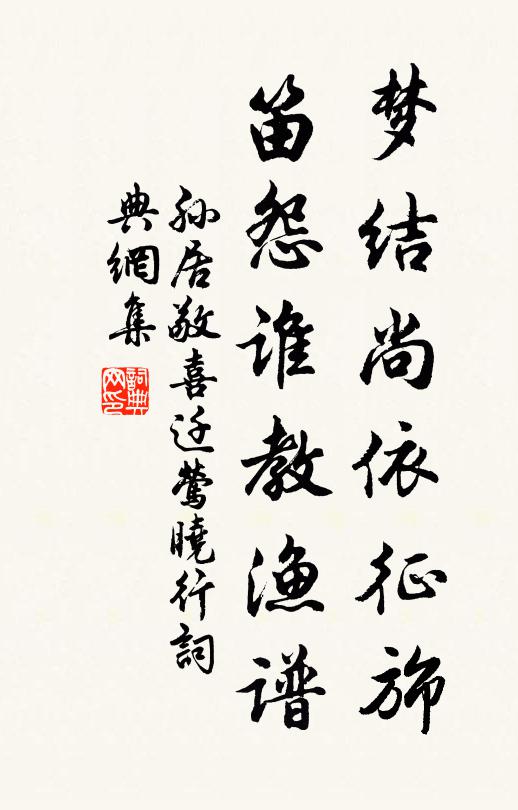 梦结尚依征旆
笛怨谁教渔谱
孙居敬喜迁莺晓行词
典網集
詞典網印